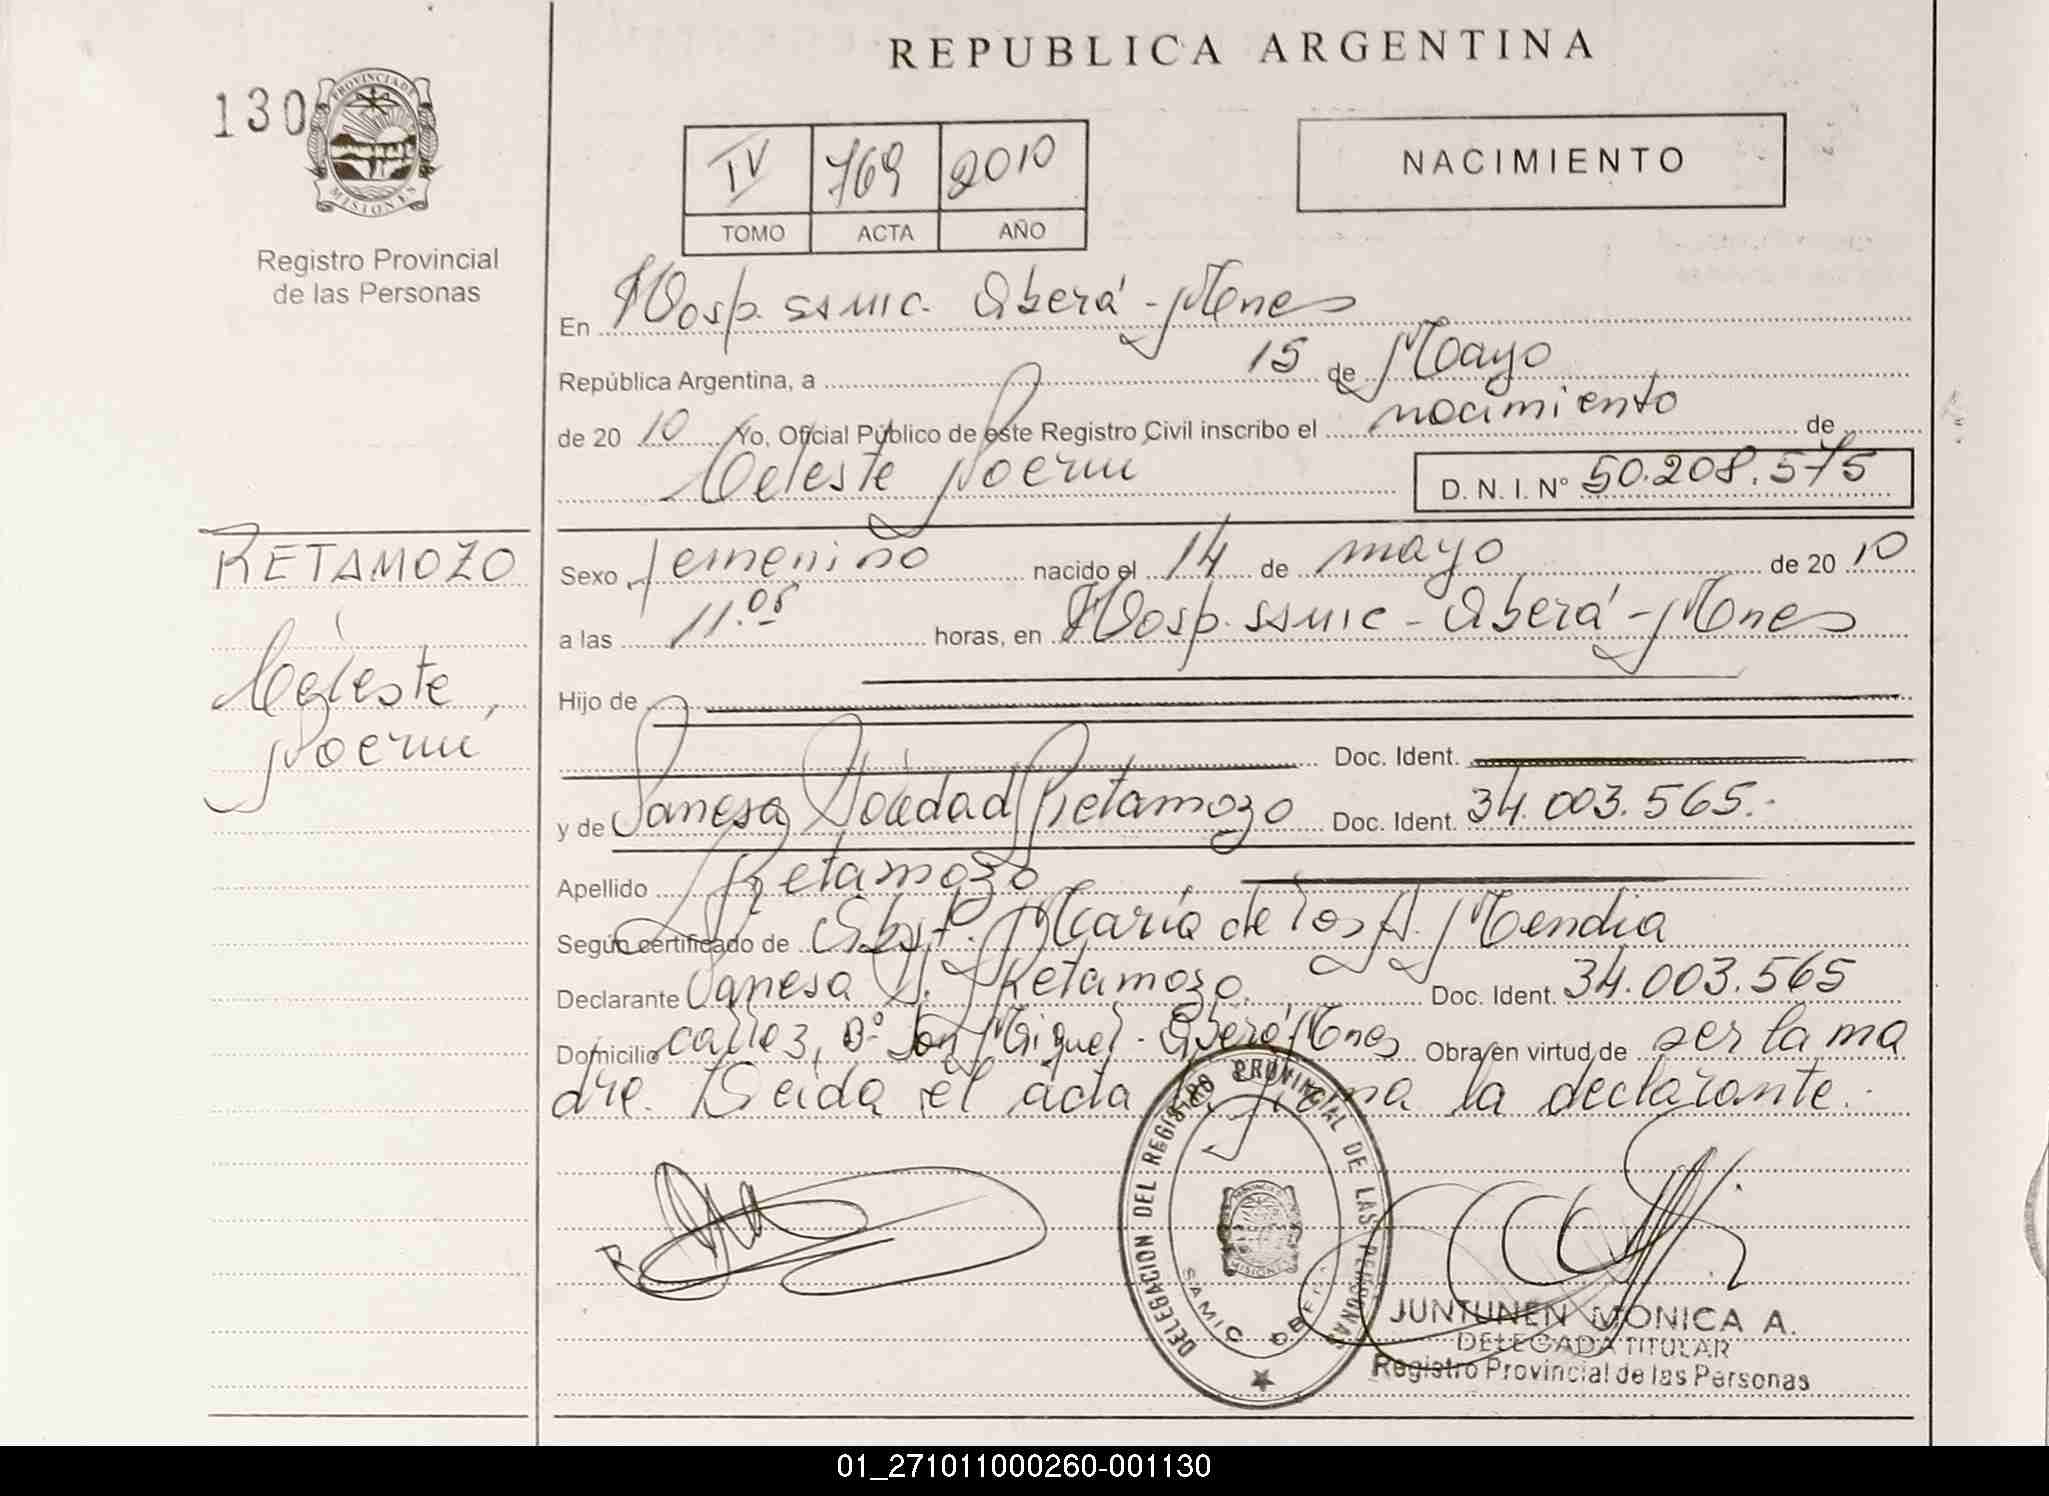 REPUBLICA ARGENTINA
130
PROVINCIA DE
MISIONES
Registro Provincial
de las Personas
IV 769 2010
TOMO ACTA AÑO
NACIMIENTO
En Hosp. SAMIC. Oberá - Mnes
República Argentina, a 15 de Mayo
de 20 10 Yo, Oficial Público de este Registro Civil inscribo el nacimiento de
Celeste Noemi
D. N. I. Nº 50.208.575
RETAMOZO
Celeste,
Noemi
Sexo femenino nacido el 14 de mayo de 20 10
a las 11.05 horas, en Hosp. SAMIC - Oberá - Mnes
Hijo de
Doc. Ident.
y de Vanesa Soledad Retamozo Doc. Ident. 34.003.565.-
Apellido Retamozo
Según certificado de Obst. María de los A. Mendia
Declarante Vanesa S. Retamozo. Doc. Ident. 34.003.565
Domicilio calle 3, Bº San Miguel - Oberá Mnes Obra en virtud de ser la ma
dre. Leida el acta firma la declarante.-
DELEGACION DEL REGISTRO PROVINCIAL DE LAS PERSONAS
SAMIC OBERA
JUNTUNEN MONICA A.
DELEGADA TITULAR
Registro Provincial de las Personas
01_271011000260-001130